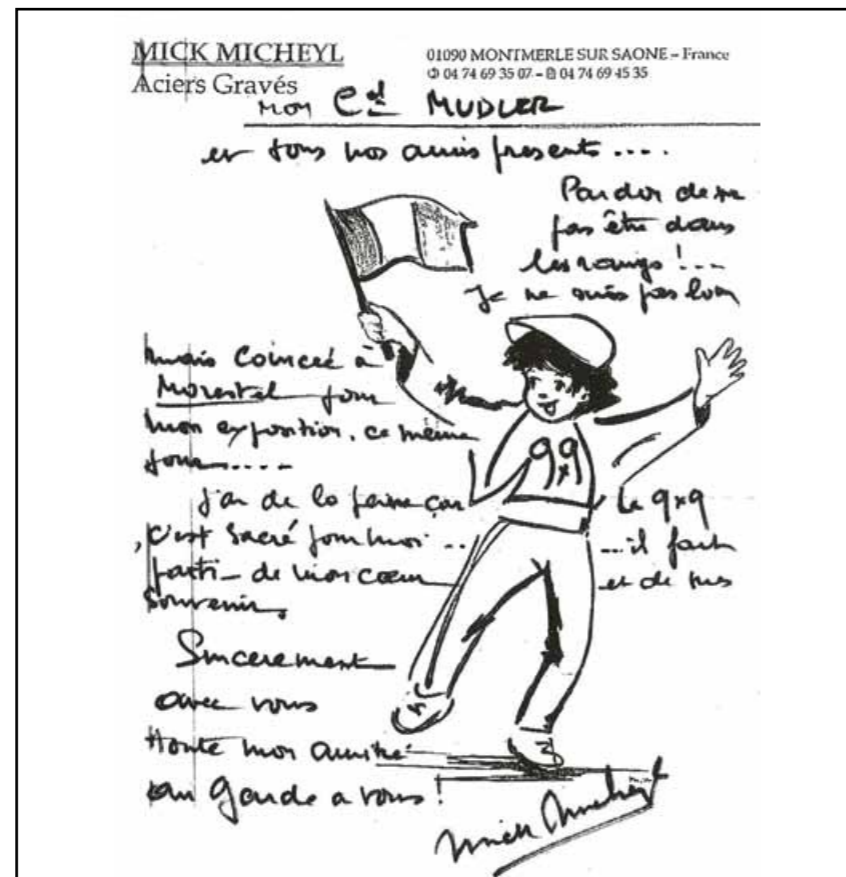 MICK MICHEYL
Aciers Gravés
01090 MONTMERLE SUR SAONE – France
04 74 69 35 07 – 04 74 69 45 35
MON Cel MUDLER
et tous nos amis présents ....
Pardon de ne
pas être dans
les rangs !...
Je ne suis pas loin
mais coincée à
Morestel pour
mon exposition, ce même
jour....
J'ai de la peine car le 9x9
, c'est sacré pour moi ... ...il fait
parti de mon cœur et de mes
souvenirs.
9x9
Sincerement
avec vous
toute mon amitié
au garde a vous !
Mick Micheyl